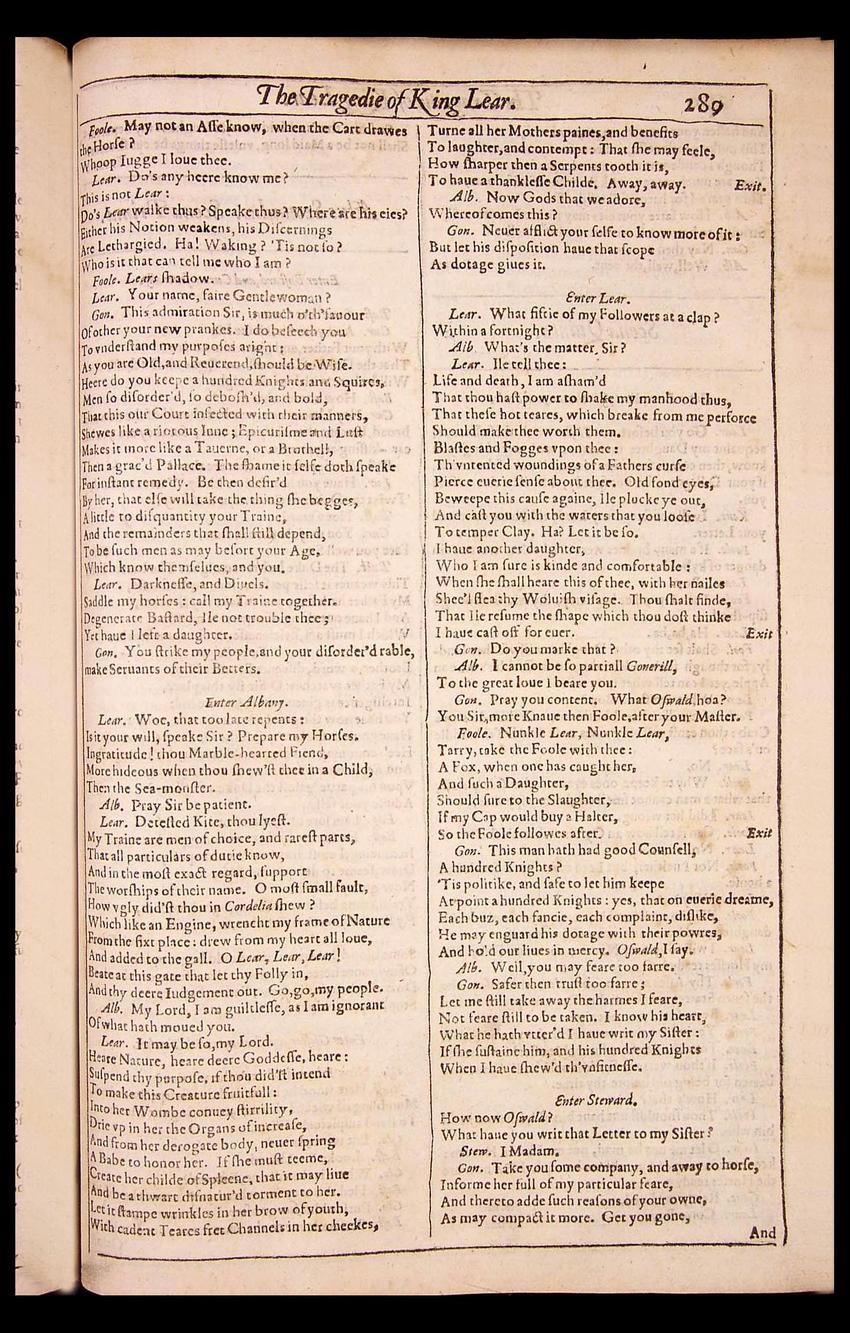 The Tragedie of King Lear. 289
Foole. May not an Asse know, when the Cart drawes
the Horse ?
Whoop Iugge I loue thee.
Lear. Do's any heere know me ?
This is not Lear :
Do's Lear walke thus ? Speake thus ? Where are his eies?
Either his Notion weakens, his Discernings
Are Lethargied. Ha! Waking ? 'Tis not so ?
Who is it that can tell me who I am ?
Foole. Lears shadow.
Lear. Your name, faire Gentlewoman ?
Gon. This admiration Sir, is much o'th'sauour
Of other your new prankes. I do beseech you
To vnderstand my purposes aright :
As you are Old,and Reuerend,should be Wise.
Heere do you keepe a hundred Knights and Squires,
Men so disorder'd, so debosh'd, and bold,
That this our Court infected with their manners,
Shewes like a riotous Inne ; Epicurisme and Lust
Makes it more like a Tauerne, or a Brothell,
Then a grac'd Pallace. The shame it selfe doth speake
For instant remedy. Be then desir'd
By her, that else will take the thing she begges,
A little to disquantity your Traine,
And the remainders that shall still depend,
To be such men as may besort your Age,
Which know themselues, and you.
Lear. Darknesse, and Diuels.
Saddle my horses : call my Traine together.
Degenerate Bastard, Ile not trouble thee ;
Yet haue I left a daughter.
Gon. You strike my people,and your disorder'd rable,
make Seruants of their Betters.
Enter Albany.
Lear. Woe, that too late repents :
Is it your will, speake Sir ? Prepare my Horses.
Ingratitude ! thou Marble-hearted Fiend,
More hideous when thou shew'st thee in a Child,
Then the Sea-monster.
Alb. Pray Sir be patient.
Lear. Detested Kite, thou lyest.
My Traine are men of choice, and rarest parts,
That all particulars of dutie know,
And in the most exact regard, support
The worships of their name. O most small fault,
How vgly did'st thou in Cordelia shew ?
Which like an Engine, wrencht my frame of Nature
From the fixt place : drew from my heart all loue,
And added to the gall. O Lear, Lear, Lear !
Beate at this gate that let thy Folly in,
And thy deere Iudgement out. Go,go,my people.
Alb. My Lord, I am guiltlesse, as I am ignorant
Of what hath moued you.
Lear. It may be so,my Lord.
Heare Nature, heare deere Goddesse, heare :
Suspend thy purpose, if thou did'st intend
To make this Creature fruitfull :
Into her Wombe conuey stirrility,
Drie vp in her the Organs of increase,
And from her derogate body, neuer spring
A Babe to honor her. If she must teeme,
Create her childe of Spleene, that it may liue
And be a thwart disnatur'd torment to her.
Let it stampe wrinkles in her brow of youth,
With cadent Teares fret Channels in her cheekes,
Turne all her Mothers paines,and benefits
To laughter,and contempt : That she may feele,
How sharper then a Serpents tooth it is,
To haue a thanklesse Childe. Away, away. Exit.
Alb. Now Gods that we adore,
Whereof comes this ?
Gon. Neuer afflict your selfe to know more of it :
But let his disposition haue that scope
As dotage giues it.
Enter Lear.
Lear. What fiftie of my Followers at a clap ?
Within a fortnight ?
Alb. What's the matter, Sir ?
Lear. Ile tell thee :
Life and death, I am asham'd
That thou hast power to shake my manhood thus,
That these hot teares, which breake from me perforce
Should make thee worth them.
Blastes and Fogges vpon thee :
Th'vntented woundings of a Fathers curse
Pierce euerie sense about thee. Old fond eyes,
Beweepe this cause againe, Ile plucke ye out,
And cast you with the waters that you loose
To temper Clay. Ha? Let it be so.
I haue another daughter,
Who I am sure is kinde and comfortable :
When she shall heare this of thee, with her nailes
Shee'l flea thy Woluish visage. Thou shalt finde,
That Ile resume the shape which thou dost thinke
I haue cast off for euer. Exit
Gon. Do you marke that ?
Alb. I cannot be so partiall Gonerill,
To the great loue I beare you.
Gon. Pray you content. What Oswald, hoa?
You Sir,more Knaue then Foole,after your Master.
Foole. Nunkle Lear, Nunkle Lear,
Tarry,take the Foole with thee :
A Fox, when one has caught her,
And such a Daughter,
Should sure to the Slaughter,
If my Cap would buy a Halter,
So the Foole followes after. Exit
Gon. This man hath had good Counsell,
A hundred Knights ?
'Tis politike, and safe to let him keepe
At point a hundred Knights : yes, that on euerie dreame,
Each buz, each fancie, each complaint, dislike,
He may enguard his dotage with their powres,
And hold our liues in mercy. Oswald,I say.
Alb. Well,you may feare too farre.
Gon. Safer then trust too farre ;
Let me still take away the harmes I feare,
Not feare still to be taken. I know his heart,
What he hath vtter'd I haue writ my Sister :
If she sustaine him, and his hundred Knights
When I haue shew'd th'vnfitnesse.
Enter Steward.
How now Oswald ?
What haue you writ that Letter to my Sister ?
Stew. I Madam.
Gon. Take you some company, and away to horse,
Informe her full of my particular feare,
And thereto adde such reasons of your owne,
As may compact it more. Get you gone,
And